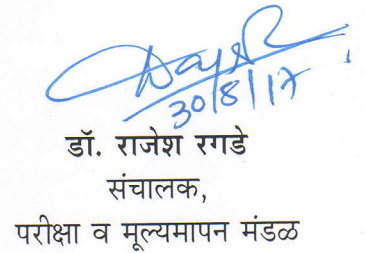 30/8/17
डॉ. राजेश रगडे
संचालक,
परीक्षा व मूल्यमापन मंडळ